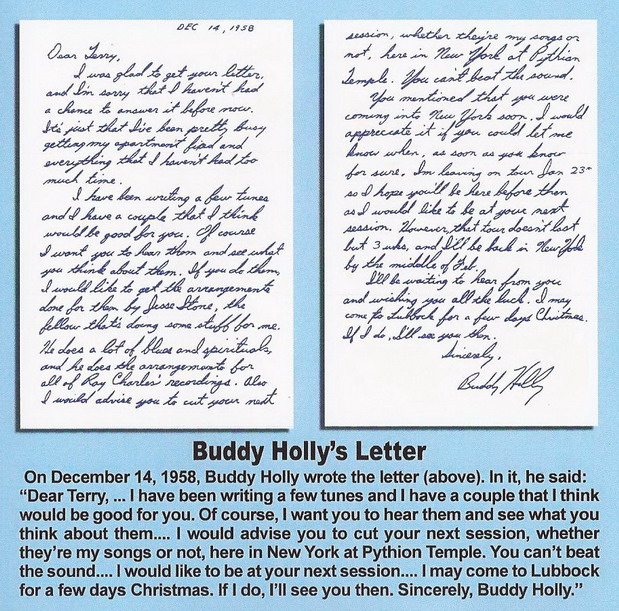 DEC 14, 1958
Dear Terry,
I was glad to get your letter,
and I'm sorry that I haven't had
a chance to answer it before now.
It's just that I've been pretty busy
getting my apartment fixed and
everything that I haven't had too
much time.
I have been writing a few tunes
and I have a couple that I think
would be good for you. Of course
I want you to hear them and see what
you think about them. If you do them,
I would like to get the arrangements
done for them by Jesse Stone, the
fellow that's doing some stuff for me.
He does a lot of blues and spirituals,
and he does the arrangements for
all of Ray Charles' recordings. Also
I would advise you to cut your next
session, whether they're my songs or
not, here in New York at Pythian
Temple. You can't beat the sound.
You mentioned that you were
coming into New York soon. I would
appreciate it if you could let me
know when, as soon as you know
for sure. I'm leaving on tour Jan 23rd
so I hope you'll be here before then
as I would like to be at your next
session. However, that tour doesn't last
but 3 wks, and I'll be back in New York
by the middle of Feb.
I'll be waiting to hear from you
and wishing you all the luck. I may
come to Lubbock for a few days Christmas.
If I do, I'll see you then.
Sincerely,
Buddy Holly
Buddy Holly's Letter
On December 14, 1958, Buddy Holly wrote the letter (above). In it, he said:
"Dear Terry, ... I have been writing a few tunes and I have a couple that I think
would be good for you. Of course, I want you to hear them and see what you
think about them.... I would advise you to cut your next session, whether
they're my songs or not, here in New York at Pythion Temple. You can't beat
the sound.... I would like to be at your next session.... I may come to Lubbock
for a few days Christmas. If I do, I'll see you then. Sincerely, Buddy Holly."